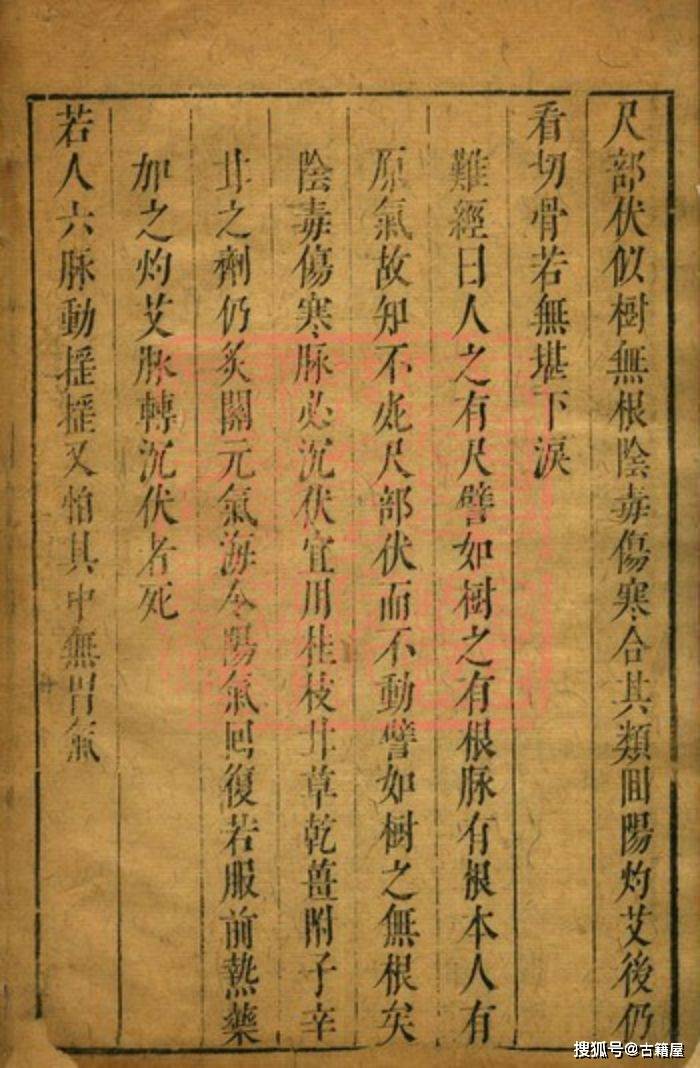 尺部伏似樹無根陰毒傷寒合其類囬陽灼艾後仍
看切骨若無堪下淚
難經曰人之有尺譬如樹之有根脉有根本人有
原氣故知不死尺部伏而不動譬如樹之無根矣
陰毒傷寒脉必沉伏宜用桂枝甘草乾薑附子辛
甘之劑仍炙關元氣海令陽氣回復若服前熱藥
加之灼艾脉轉沉伏者死
若人六脉動揺揺又怕其中無胃氣
搜狐号@古籍屋